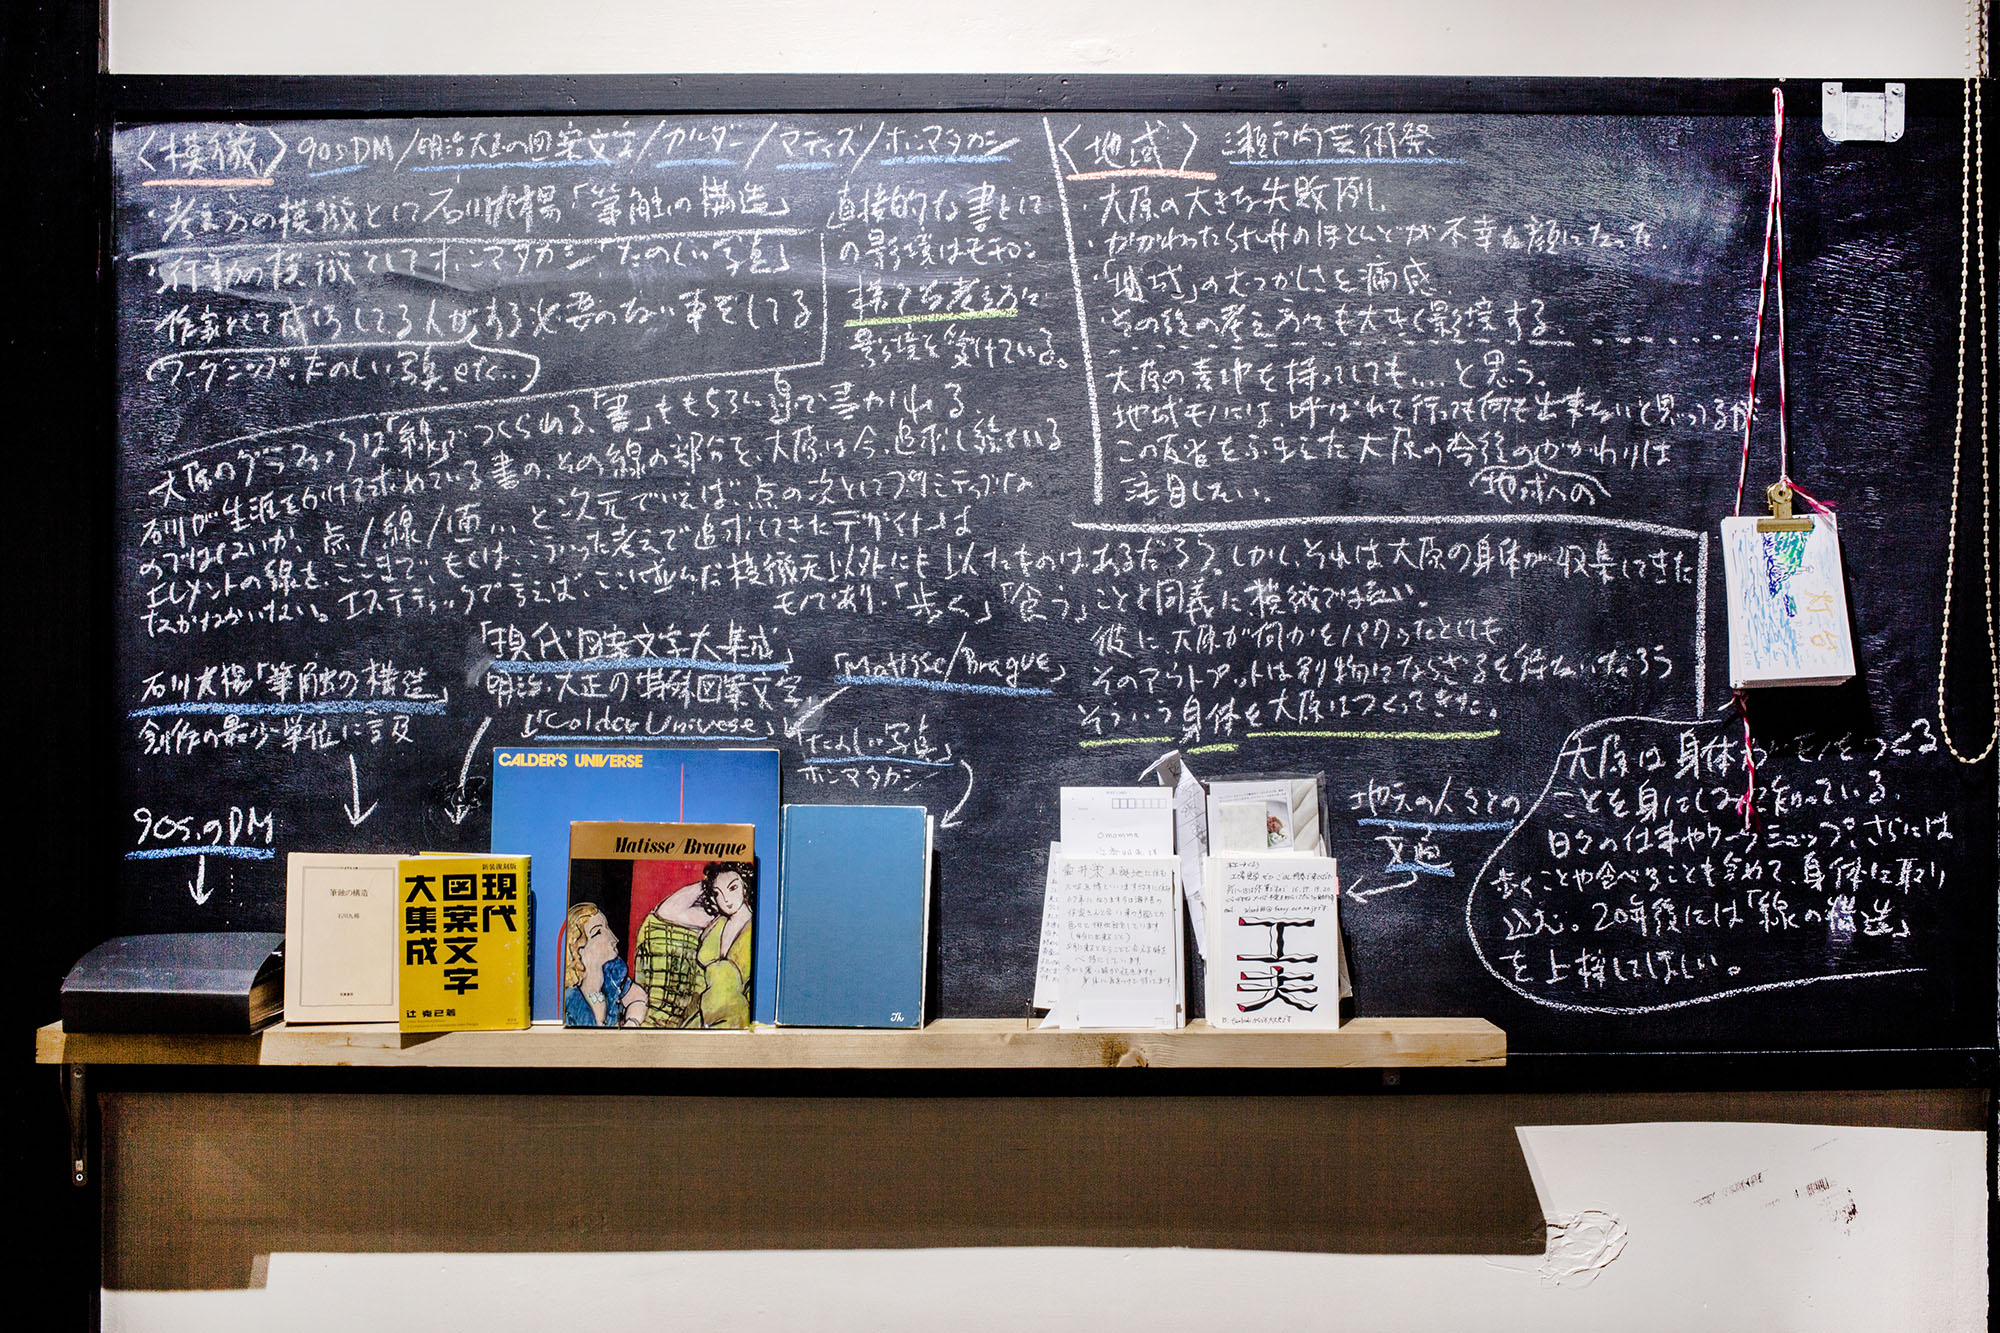 〈模倣〉 90sDM/明治大正の図案文字/カルダー/マティス/ホンマタカシ
・考え方の模倣として石川九楊「筆触の構造」
・行動の模倣としてホンマタカシ「たのしい写真」
作家として成功してる人がある必要のない事をしてる
(ワークショップ、たのしい写真、etc...)
直接的な書として
の影響はモチロン
様々な考え方に
影響を受けている。
大原のグラフィックは「線」でつくられる。「書」ももちろん線で書かれる。
石川が生涯をかけて求めている書の、その線の部分を、大原は今、追求し続けている
のではないか、点/線/面... と次元でいえば、点の次としてプリミティブな
エレメントの線を、ここまで、もしくは、こういった考えで追求してきたデザイナーは
なかなかいない。エステティックで言えば、ここに並んだ模倣元以外にも似たものはあるだろう。しかし、それは大原の身体が収集してきた
モノであり、「歩く」「食う」ことと同義に模倣ではない。
仮に大原が何かをパクったとしても
そのアウトプットは別物にならざるを得ないだろう
そういう身体を大原はつくってきた。
〈地域〉 瀬戸内芸術祭
・大原の大きな失敗例。
・かかわったのほとんどが不幸な顔になった。
・「地域」のむつかしさを痛感。
・その後の考え方にも大きく影響する。
大原の素地を持ってしても....と思う。
地域モノには、呼ばれて行っても何も出来ないと思ってるが
この反省をふまえた大原の今後のかかわりは
(地域への)
注目したい。
石川九楊「筆触の構造」
創作の最少単位に言及
「現代図案文字大集成」
明治、大正の特殊図案文字
「Calder Universe」
「Matisse/Braque」
「たのしい写真」
ホンマタカシ
90s.のDM
地元の人々との
文通
大原は身体がモノをつくる
ことを身にしみて知っている。
日々の仕事やワークショップ、さらには
歩くことや食べることも含めて、身体に取り
込む。20年後には「線の構造」
を上梓してほしい。
CALDER'S UNIVERSE
Matisse/Braque
筆蝕の構造
石川九楊
新装復刻版
現代
図案文字
大集成
辻 克己著
Omomma
工夫
灯台